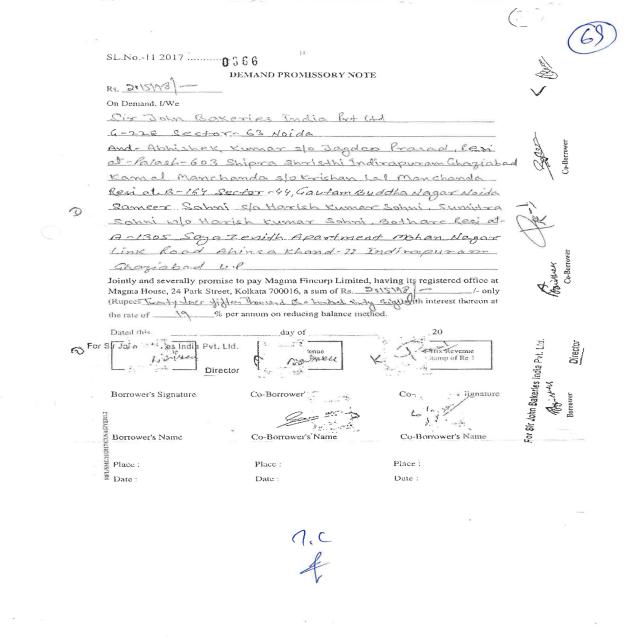 69
SL.No.-11 2017 ........... 0366
DEMAND PROMISSORY NOTE
Rs.
On Demand, I/We
Sir John Bakeries India Pvt Ltd
G-228 Sector-63 Noida
And- Abhishek Kumar s/o Jagdeo Prasad, Resi
at-Palash-603 Shipra Shristhi Indirapuram Ghaziabad
Kamal Manchanda s/o Krishan Lal Manchanda
Resi at B-164 Sector-44, Gautam Buddha Nagar Noida
Sameer Sahni s/o Harish Kumar Sahni, Sumitra
Sahni w/o Harish Kumar Sahni, Bothare Resi at-
A-1305 Saya Zenith Apartment Mohan Nagar
Link Road Ahinsa Khand-II Indirapuram
Ghaziabad U.P
Jointly and severally promise to pay Magma Fincorp Limited, having its registered office at
Magma House, 24 Park Street, Kolkata 700016, a sum of Rs. /- only
(Rupees with interest thereon at
the rate of 19 % per annum on reducing balance method.
Dated this day of 20
For Sir John es India Pvt. Ltd.
Director
Revenue
Stamp of Re 1
Borrower's Signature Co-Borrower' Co- Signature
Borrower's Name Co-Borrower's Name Co-Borrower's Name
Place : Place : Place :
Date : Date : Date :
Co-Borrower
Co-Borrower
For Sir John Bakeries India Pvt. Ltd.
Borrower
Director
T.C